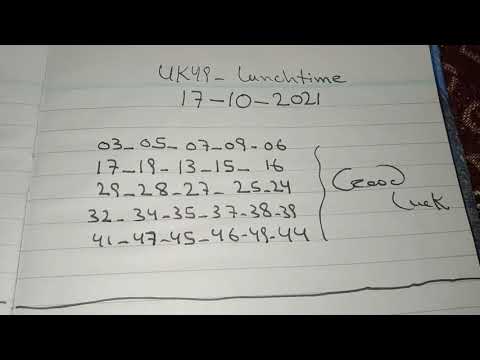 UK49- Lunchtime
17-10-2021
03-05-07-09-06
17-19-13-15-16
29-28-27-25-24
32-34-35-37-38-39
41-47-45-46-49-44
Good
Luck